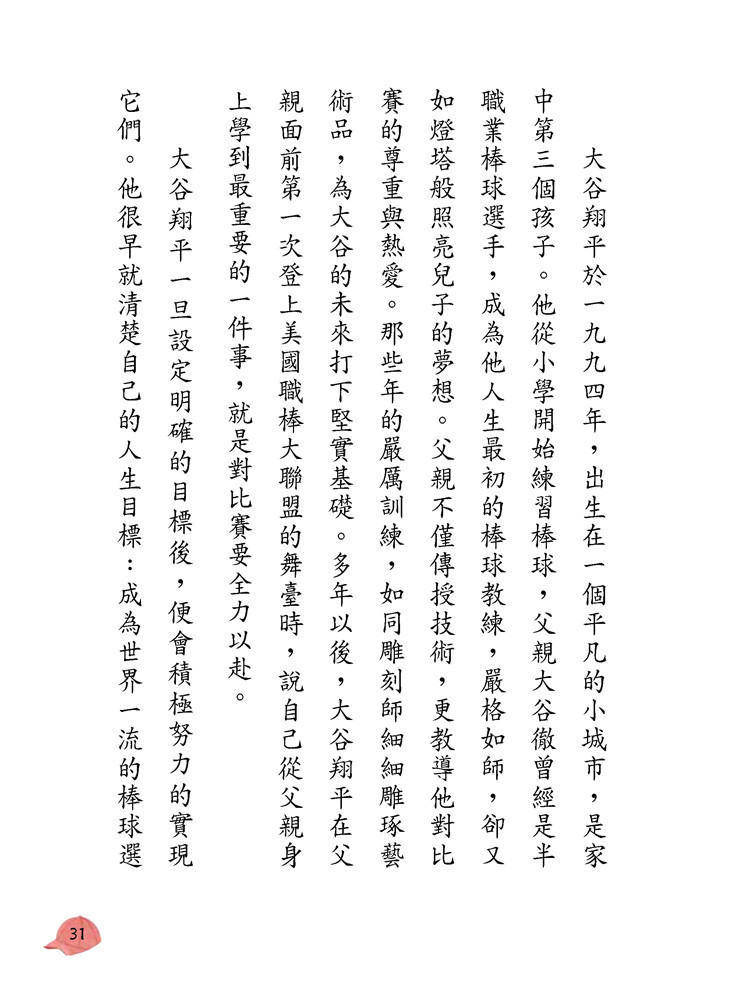 大谷翔平於一九九四年，出生在一個平凡的小城市，是家
中第三個孩子。他從小學開始練習棒球，父親大谷徹曾經是半
職業棒球選手，成為他人生最初的棒球教練，嚴格如師，卻又
如燈塔般照亮兒子的夢想。父親不僅傳授技術，更教導他對比
賽的尊重與熱愛。那些年的嚴厲訓練，如同雕刻師細細雕琢藝
術品，為大谷的未來打下堅實基礎。多年以後，大谷翔平在父
親面前第一次登上美國職棒大聯盟的舞臺時，說自己從父親身
上學到最重要的一件事，就是對比賽要全力以赴。
大谷翔平一旦設定明確的目標後，便會積極努力的實現
它們。他很早就清楚自己的人生目標：成為世界一流的棒球選
31